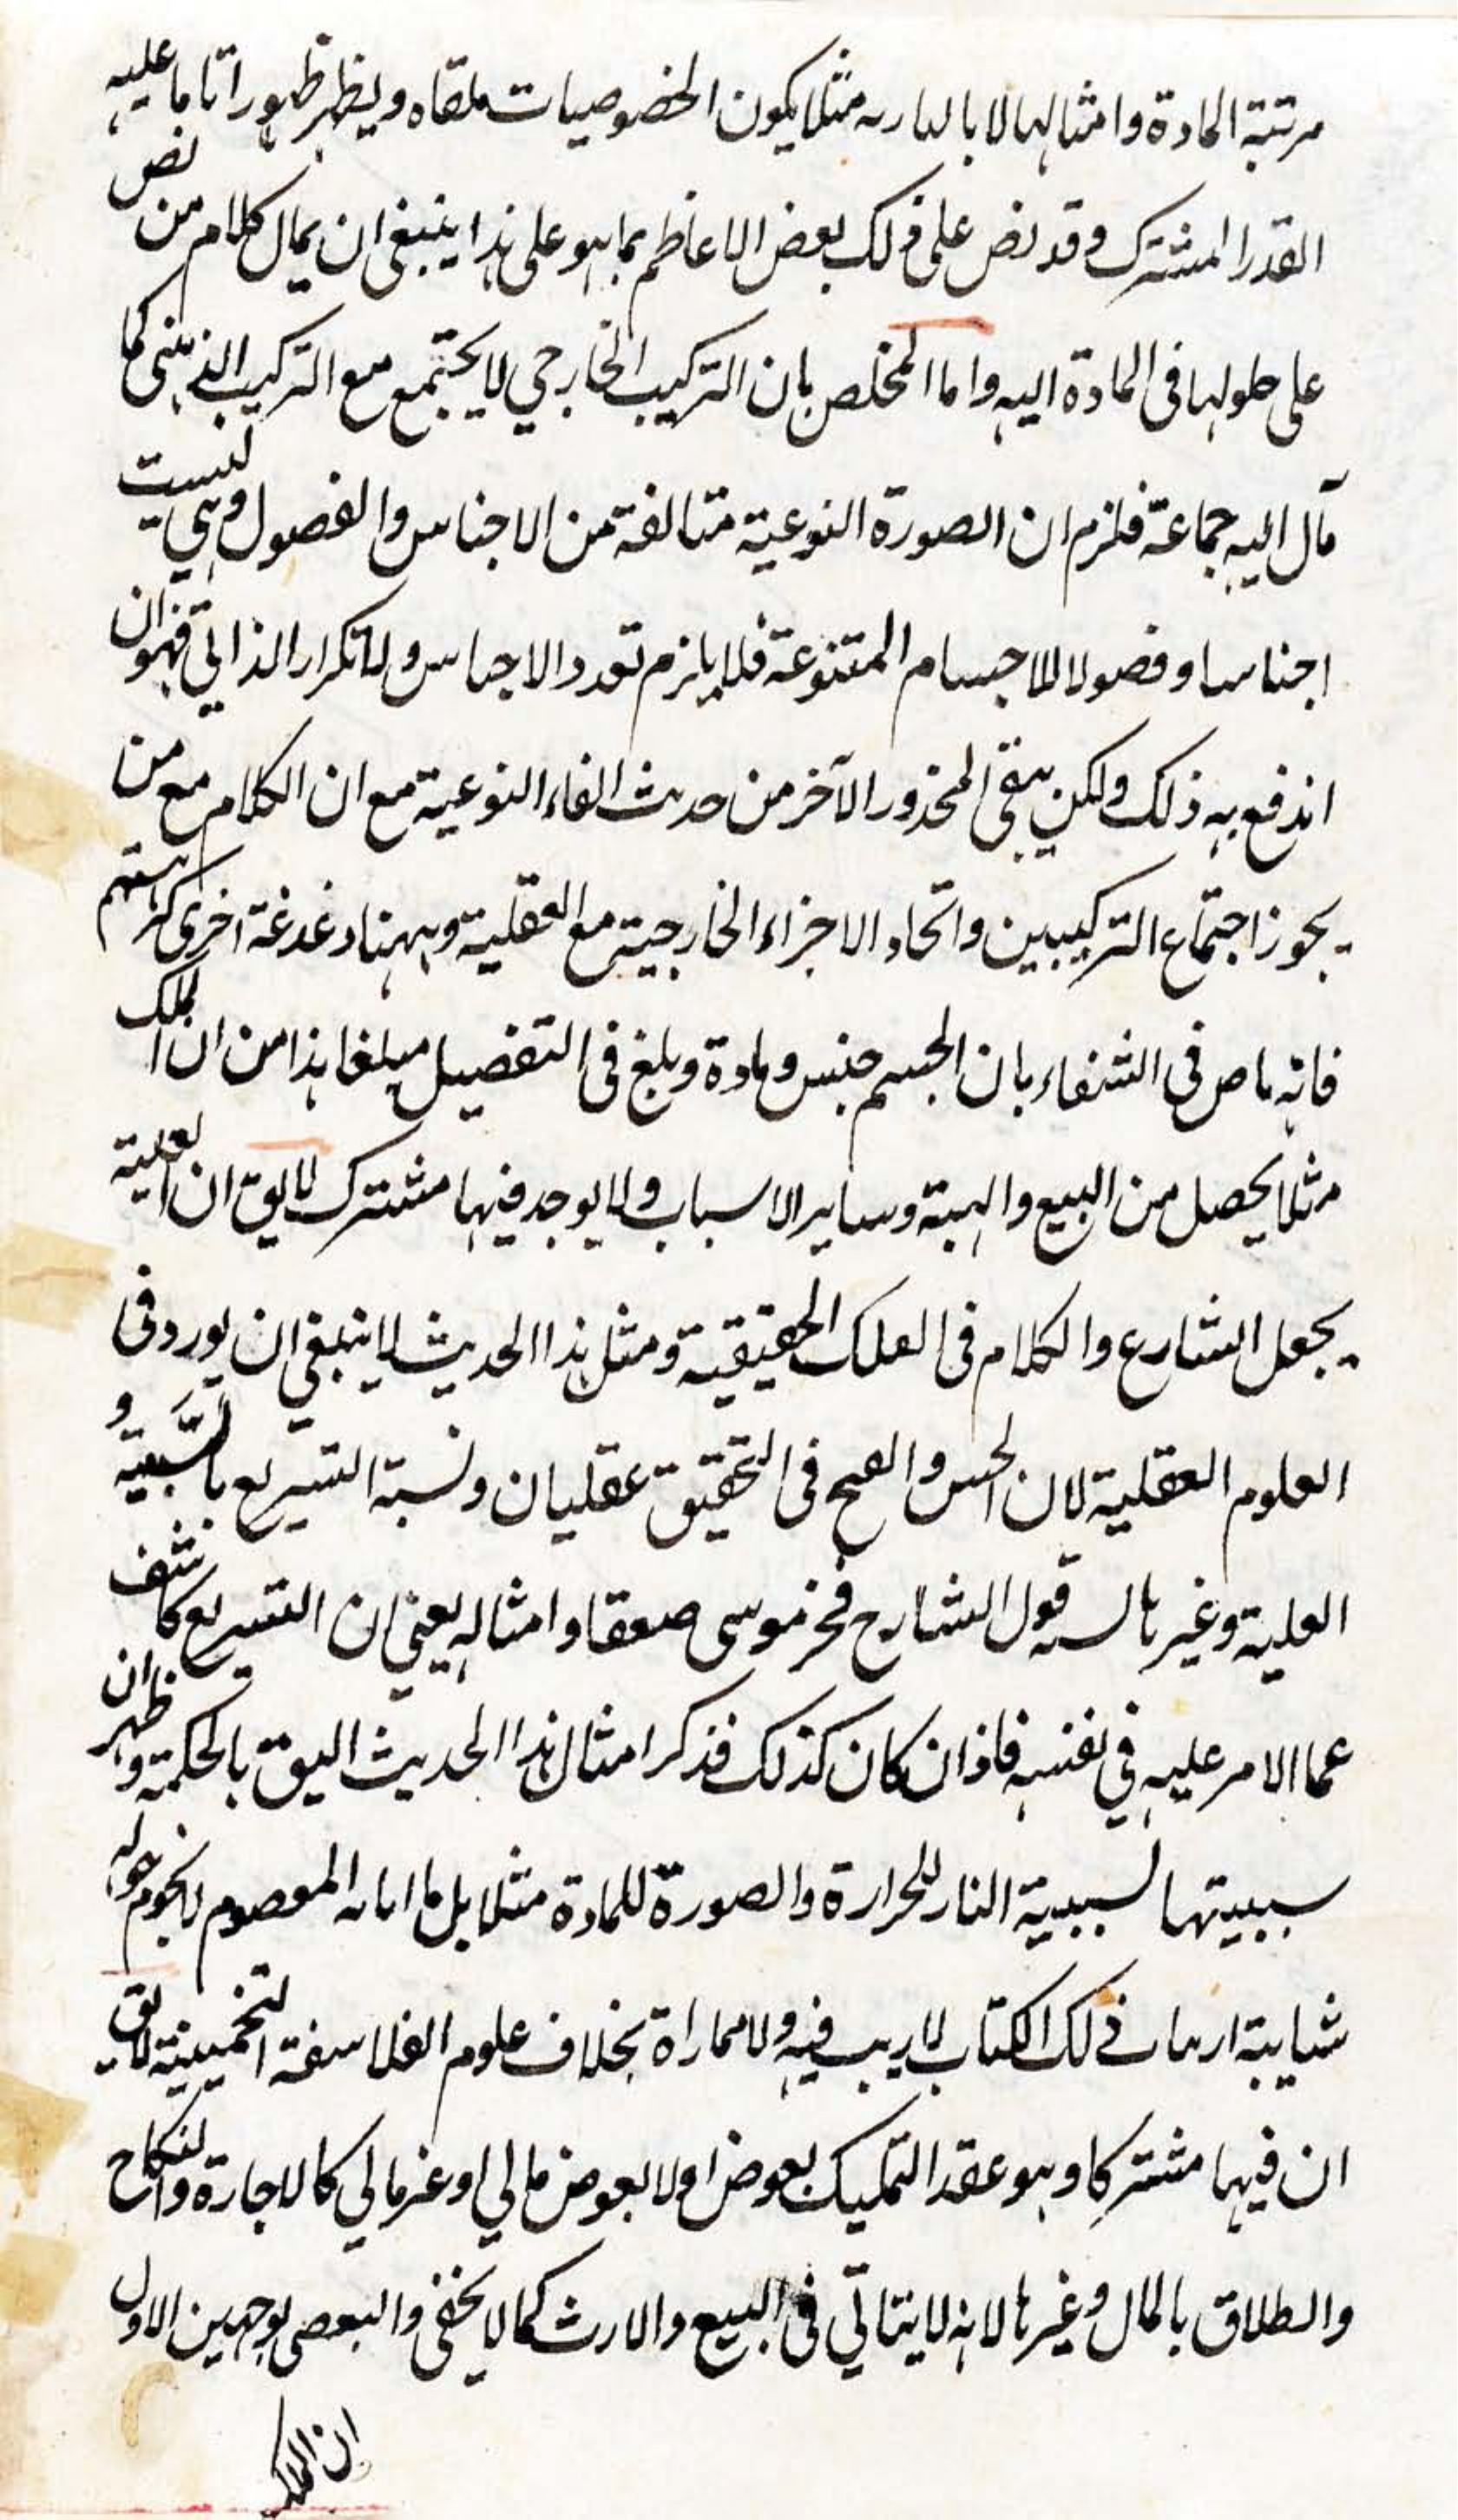 مرتبة المادة وامثالها لا بالمارسه مثلا يكون الخصوصيات ملقاه ويظهر ظهورا تاما عليه
القدر المشترك وقد نص على ذلك بعض الاعاظم بما هو على هذا ينبغي ان يمال كلام من نص
على حلولها فى المادة اليه واما المخلص بان التركيب الخارجي لا يجتمع مع التركيب الذهني كما
مآل اليه جماعة فلزم ان الصورة النوعية متالفة من الاجناس والفصول وهي ليست
اجناسا وفصولا للاجسام المتنوعة فلا يلزم تعدد الاجناس ولا تكرار الذاتي فهو ان
اندفع به ذلك ولكن يبقى المحذور الآخر من حديث الغاء النوعية مع ان الكلام مع من
يجوز اجتماع التركيبين واتحاد الاجزاء الخارجية مع العقلية وههنا دغدغة اخرى
فانه ناص فى الشفاء بان الجسم جنس ومادة وبلغ فى التفصيل مبلغا هذا من ان الملك
مثلا يحصل من البيع والهبة وساير الاسباب ولا يوجد فيها مشترك لا يق ان العلية
يجعل الشارع والكلام فى العلل الحقيقية ومثل هذا الحديث لا ينبغي ان يورد فى
العلوم العقلية لان الحسن والقبح فى التحقيق عقليان ونسبة التشريع بالسببية و
العلية وغيرها قول الشارح فخر موسى صعقا وامثاله يعني ان التشريع كاشف
عما الامر عليه في نفسه فاذا ان كان كذلك فذكر امثال هذا الحديث اليق بالحكمة وظهر ان
سببيتها لسببية النار للحرارة والصورة للمادة مثلا بل ما المعصوم لا يحوم حوله
شايبة ذلك الكتاب لا ريب فيه ولا مماراة بخلاف علوم الفلاسفة التخمينية لا يق
ان فيها مشتركا وهو عقد التمليك بعوض او لا بعوض مالي او غير مالي كالاجارة والنكاح
والطلاق بالمال وغيرها لانه لا يتاتي فى البيع والارث كما لا يخفى والبعض بوجهين الاول
ان الملك